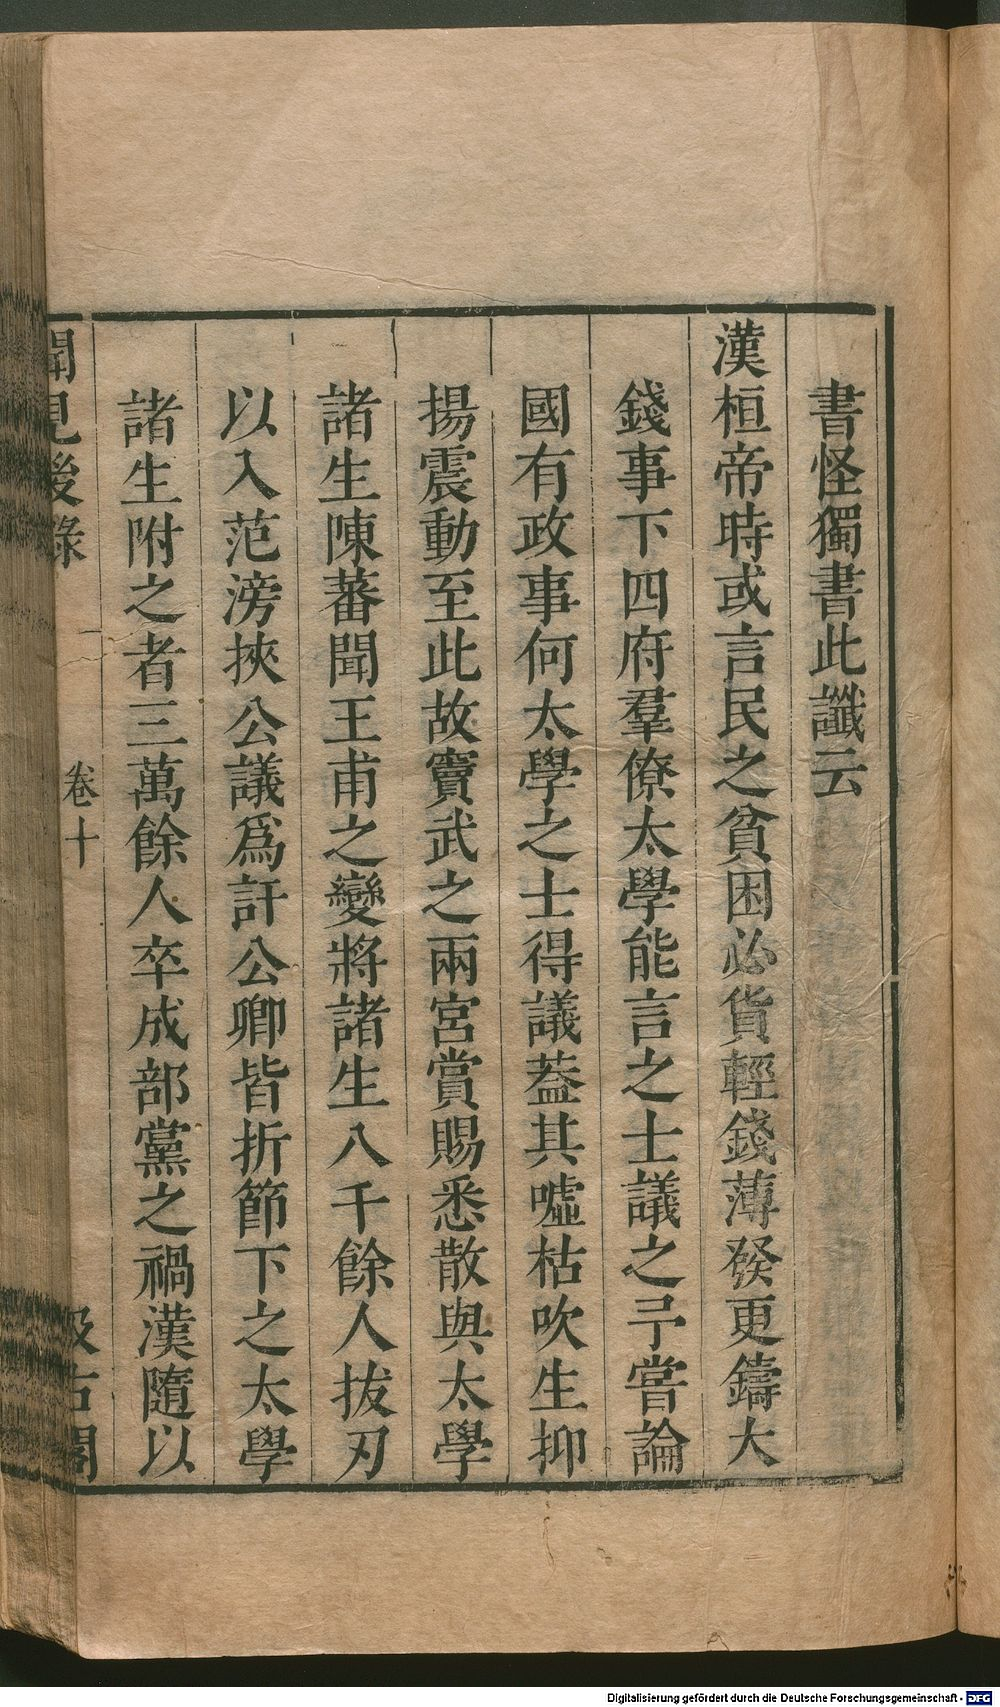 書怪獨書此讖云
漢桓帝時或言民之貧困必貨輕錢薄發更鑄大
錢事下四府羣僚太學能言之士議之予嘗論
國有政事何太學之士得議葢其噓枯吹生抑
揚震動至此故竇武之兩宮賞賜悉散與太學
諸生陳蕃聞王甫之變將諸生八千餘人拔刃
以入范滂挾公議爲訐公卿皆折節下之太學
諸生附之者三萬餘人卒成部黨之禍漢隨以
聞見後錄
卷十
汲古閣
Digitalisierung gefördert durch die Deutsche Forschungsgemeinschaft - DFG